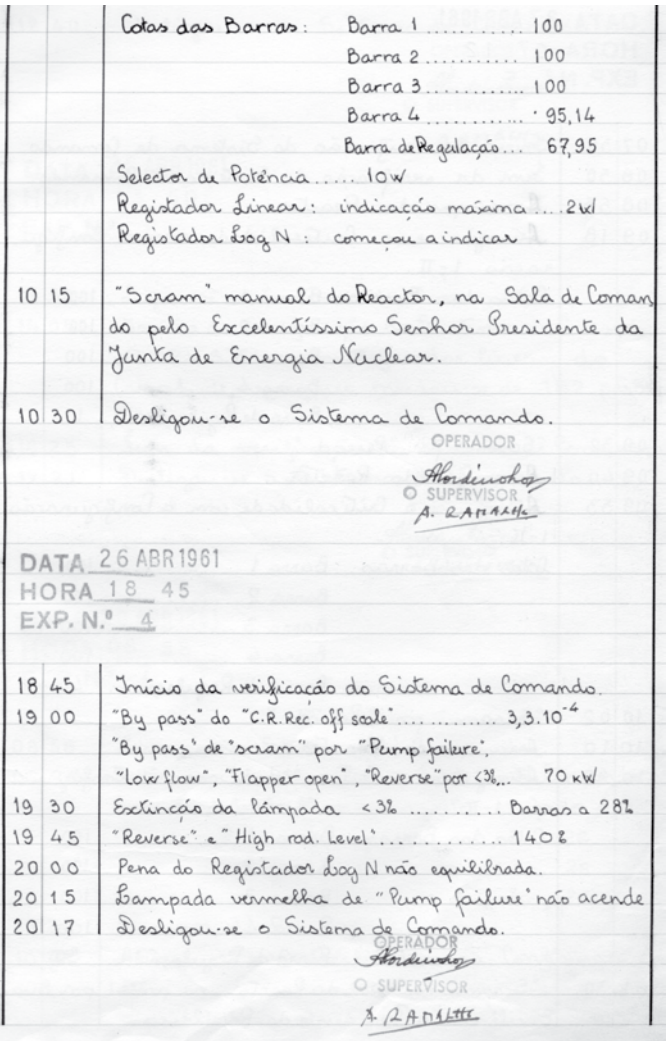 Cotas das Barras: Barra 1 ........... 100
Barra 2 ........... 100
Barra 3 ........... 100
Barra 4 ............ 95,14
Barra de Regulação ... 67,95
Selector de Potência ...... 10 w
Registador Linear: indicação máxima ... 2 w
Registador Log N: começou a indicar
10 15 "Scram" manual do Reactor, na Sala de Coman
do pelo Excelentíssimo Senhor Presidente da
Junta de Energia Nuclear.
10 30 Desligou-se o Sistema de Comando.
OPERADOR
O SUPERVISOR
A. RAMALHO
DATA 26 ABR 1961
HORA 18 45
EXP. N.º 4
18 45 Início da verificação do Sistema de Comando.
19 00 "By pass" do "C.R.Rec. off scale" ............ 3,3.10⁻⁴
"By pass" de "scram" por "Pump failure",
"Low flow", "Flapper open", "Reverse" por <3%... 70 kW
19 30 Extinção da lâmpada <3% .......... Barras a 28%
19 45 "Reverse" e "High rad. Level" ............. 140%
20 00 Pena do Registador Log N não equilibrada.
20 15 Lampada vermelha de "Pump failure" não acende
20 17 Desligou-se o Sistema de Comando.
OPERADOR
O SUPERVISOR
A. RAMALHO